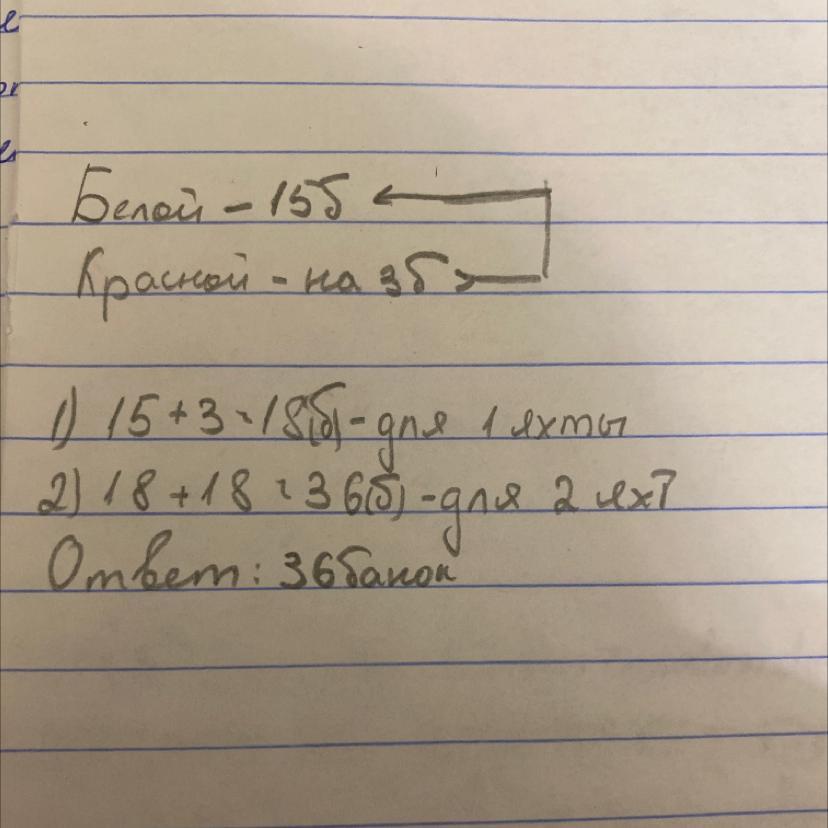 Белой - 15б
Красной - на 3б >
1) 15 + 3 = 18(б) - для 1 яхты
2) 18 + 18 = 36(б) - для 2 яхт
Ответ: 36 банок